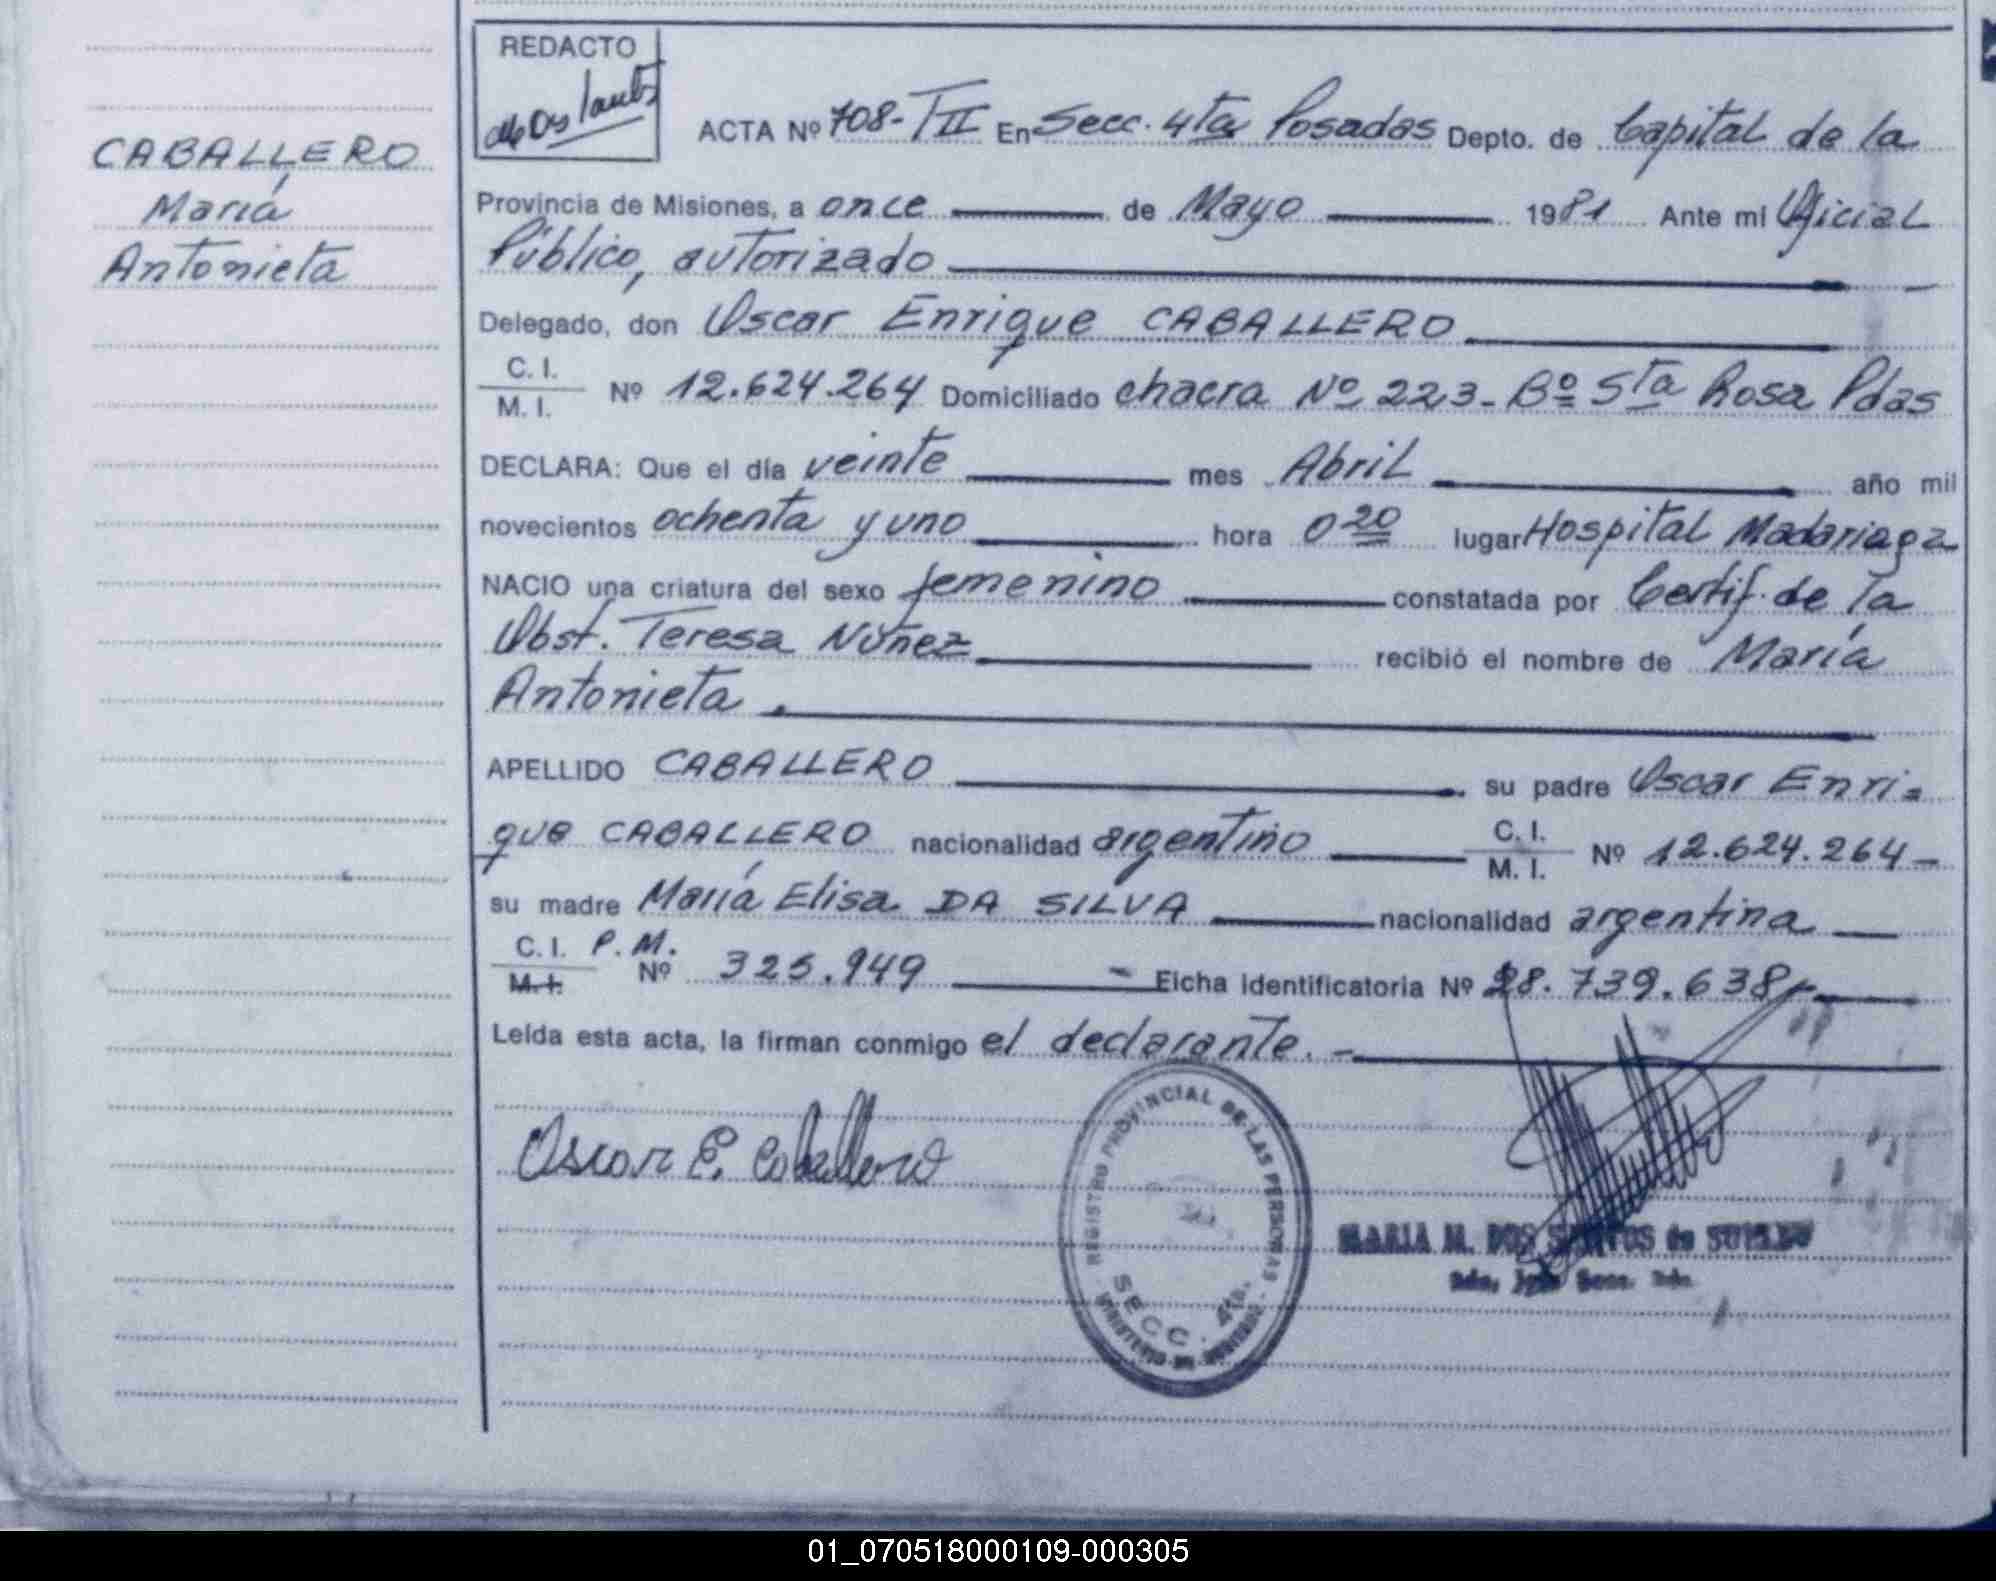 CABALLERO,
María
Antonieta
REDACTO
ACTA Nº 708-TII En Secc. 4ta Posadas Depto. de Capital de la
Provincia de Misiones, a once de Mayo 1981 Ante mi Oficial
Público, autorizado
Delegado, don Oscar Enrique CABALLERO
C. I.
M. I. Nº 12.624.264 Domiciliado chacra Nº 223- Bº Sta Rosa Pdas
DECLARA: Que el día veinte mes Abril año mil
novecientos ochenta y uno hora 0 20 lugar Hospital Madariaga
NACIO una criatura del sexo femenino constatada por Certif. de la
Obst. Teresa Núñez recibió el nombre de María
Antonieta.
APELLIDO CABALLERO su padre Oscar Enri=
que CABALLERO nacionalidad argentino C. I.
M. I. Nº 12.624.264-
su madre María Elisa DA SILVA nacionalidad argentina
C. I. P. M.
M. I. Nº 325.949 - Ficha identificatoria Nº 28.739.638
Leída esta acta, la firman conmigo el declarante. -
Oscar E. Caballero
REGISTRO PROVINCIAL DE LAS PERSONAS
SECC. 4ta.
MARIA M. DOS SANTOS de
01_070518000109-000305